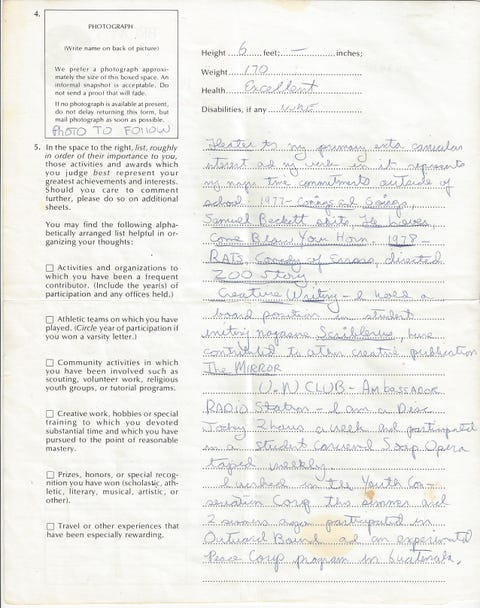 4.
PHOTOGRAPH
(Write name on back of picture)
We prefer a photograph approxi-
mately the size of this boxed space. An
informal snapshot is acceptable. Do
not send a proof that will fade.
If no photograph is available at present,
do not delay returning this form, but
mail photograph as soon as possible.
PHOTO TO FOLLOW
Height 6 feet; — inches;
Weight 170
Health Excellent
Disabilities, if any NONE
5. In the space to the right, list, roughly
in order of their importance to you,
those activities and awards which
you judge best represent your
greatest achievements and interests.
Should you care to comment
further, please do so on additional
sheets.
You may find the following alpha-
betically arranged list helpful in or-
ganizing your thoughts:
Activities and organizations to
which you have been a frequent
contributor. (Include the year(s) of
participation and any offices held.)
Athletic teams on which you have
played. (Circle year of participation if
you won a varsity letter.)
Community activities in which
you have been involved such as
scouting, volunteer work, religious
youth groups, or tutorial programs.
Creative work, hobbies or special
training to which you devoted
substantial time and which you have
pursued to the point of reasonable
mastery.
Prizes, honors, or special recog-
nition you have won (scholastic, ath-
letic, literary, musical, artistic, or
other).
Travel or other experiences that
have been especially rewarding.
is my primary extra
interest and my work in it represents
my major time commitments outside of
school 1977- Comings and Goings,
Samuel Beckett skits,
Come Blow Your Horn, 1978-
RATS, Comedy of Errors, directed
ZOO Story
Creative Writing - I hold a
board position in student
writing magazine Scriblerus, have
contributed to other creative publication
The MIRROR
U.N CLUB - AMBASSADOR
RADIO Station - I am a Disc
Jockey 2 hours a week and participated
in a student Soap Opera
taped weekly.
I worked in the Youth Con-
servation Corp this summer and
2 summers ago participated in
Outward Bound and an experimental
Peace Corp program in Guatemala.